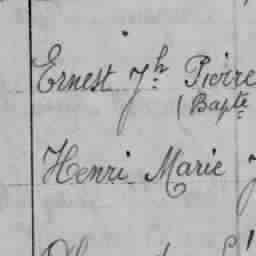 Ernest Jh. Pierre
(Bapte
Henri Marie